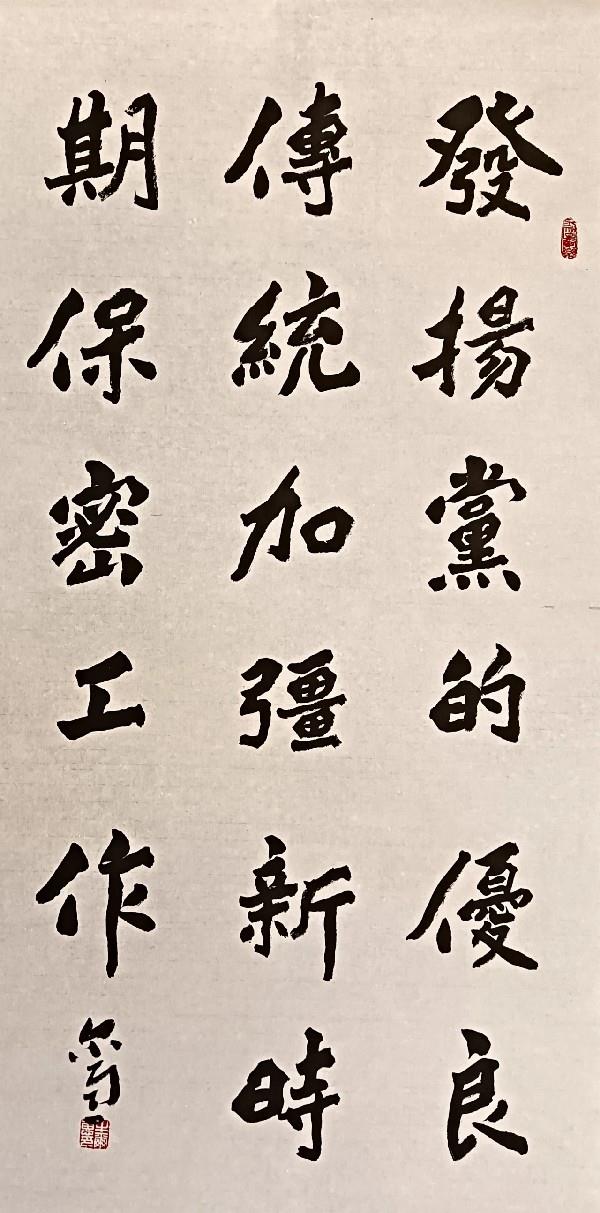 發揚黨的優良
傳統加彊新時
期保密工作